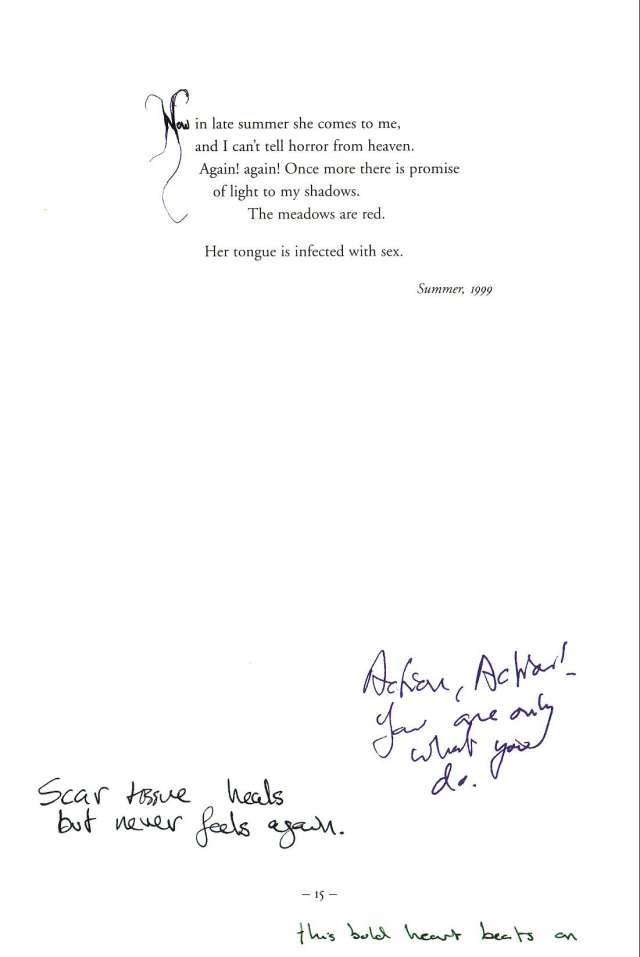 Now in late summer she comes to me,
and I can't tell horror from heaven.
Again! again! Once more there is promise
of light to my shadows.
The meadows are red.
Her tongue is infected with sex.
Summer, 1999
Action, Action!
You are only
what you
do.
Scar tissue heals
but never feels again.
– 15 –
this bold heart beats on